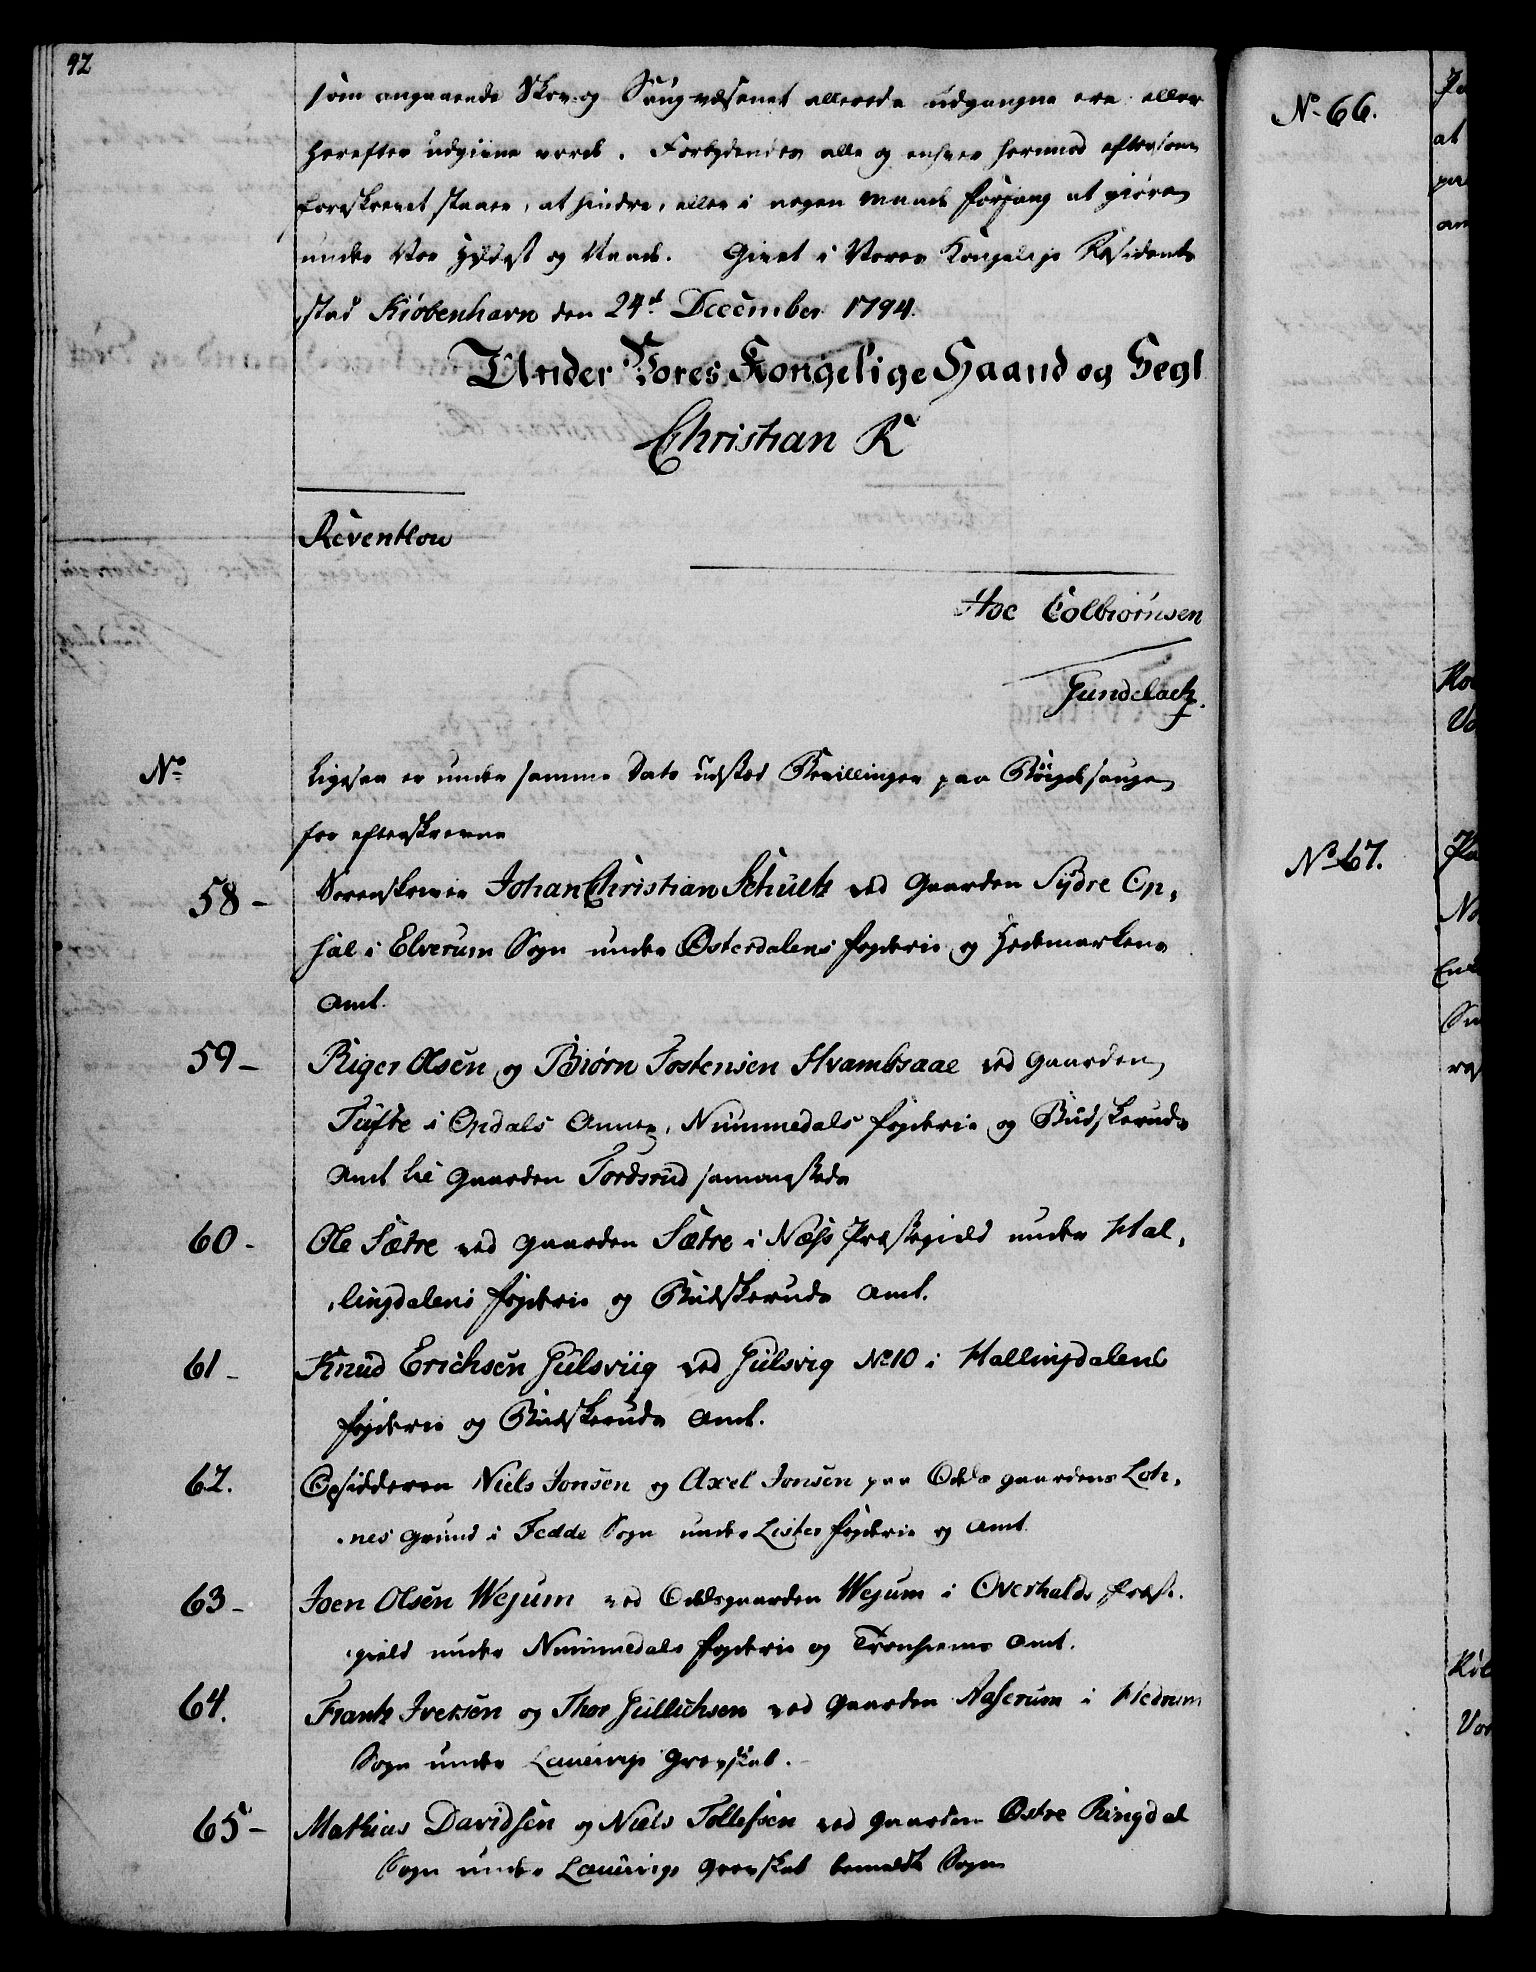 92
som angaaende Skov og Saugvæsenet allerede udgangne ere eller
herefter udgivne vorde. Forbydendes alle og enhver herimod eftersom
foreskrevet staaer, at hindre, eller i nogen maade forfang at giøre
under Vor Hyldest og Naade. Givet i Vores Kongelige Residents
stad Kiøbenhavn den 24d December 1794.
Under Vores Kongelige Haand og Segl
Christian R
Reventlou
Hoe Colbiørnsen
Gundelach.
No
Ligesaa er under samme Dato udstæd Bevillinger paa Bøigdesauge
for efterskrevne
58- Sorenskriver Johan Christian Schultz ved Gaarden Sÿdre Op,
sal i Elverum Sogn under Østerdalens fogderie og Hedemarkens
Amt.
59- Birger Olsen og Biørn Tostensen Hvambsaae ved Gaarden
Tufte i Opdals Annex, Nummedals fogderie og Budskeruds
Amt til Gaarden Tordsrud sammesteds
60- Ole Sætre ved Gaarden Sætre i Næss Præstegield under Hal,
lingdalens fogderie og Budskeruds Amt.
61- Knud Erichsen Gulsviig ved Gulsvig No 10 i Hallingdalens
fogderie og Budskeruds Amt.
62. Opsidderen Niels Jonsen og Axel Jonsen paa Odels gaardens Loh,
nes grund i Fedde Sogn under Lister fogderie og Amt.
63- Joen Olsen Wejum ved Odelsgaarden Wejum i Overhalds Præste
gield under Nummedals fogderie og Tronhiems Amt.
64. Frantz Iversen og Thor Gullichsen ved Gaarden Aaserum i Hedrum
Sogn under Laurvigs Grevskab.
65- Mathias Davidsen og Niels Tollefsen ved Gaarden Østre Ringdal
Sogn under Laurvigs Grevskab bemeldte Sogn
No 66.
No 67.